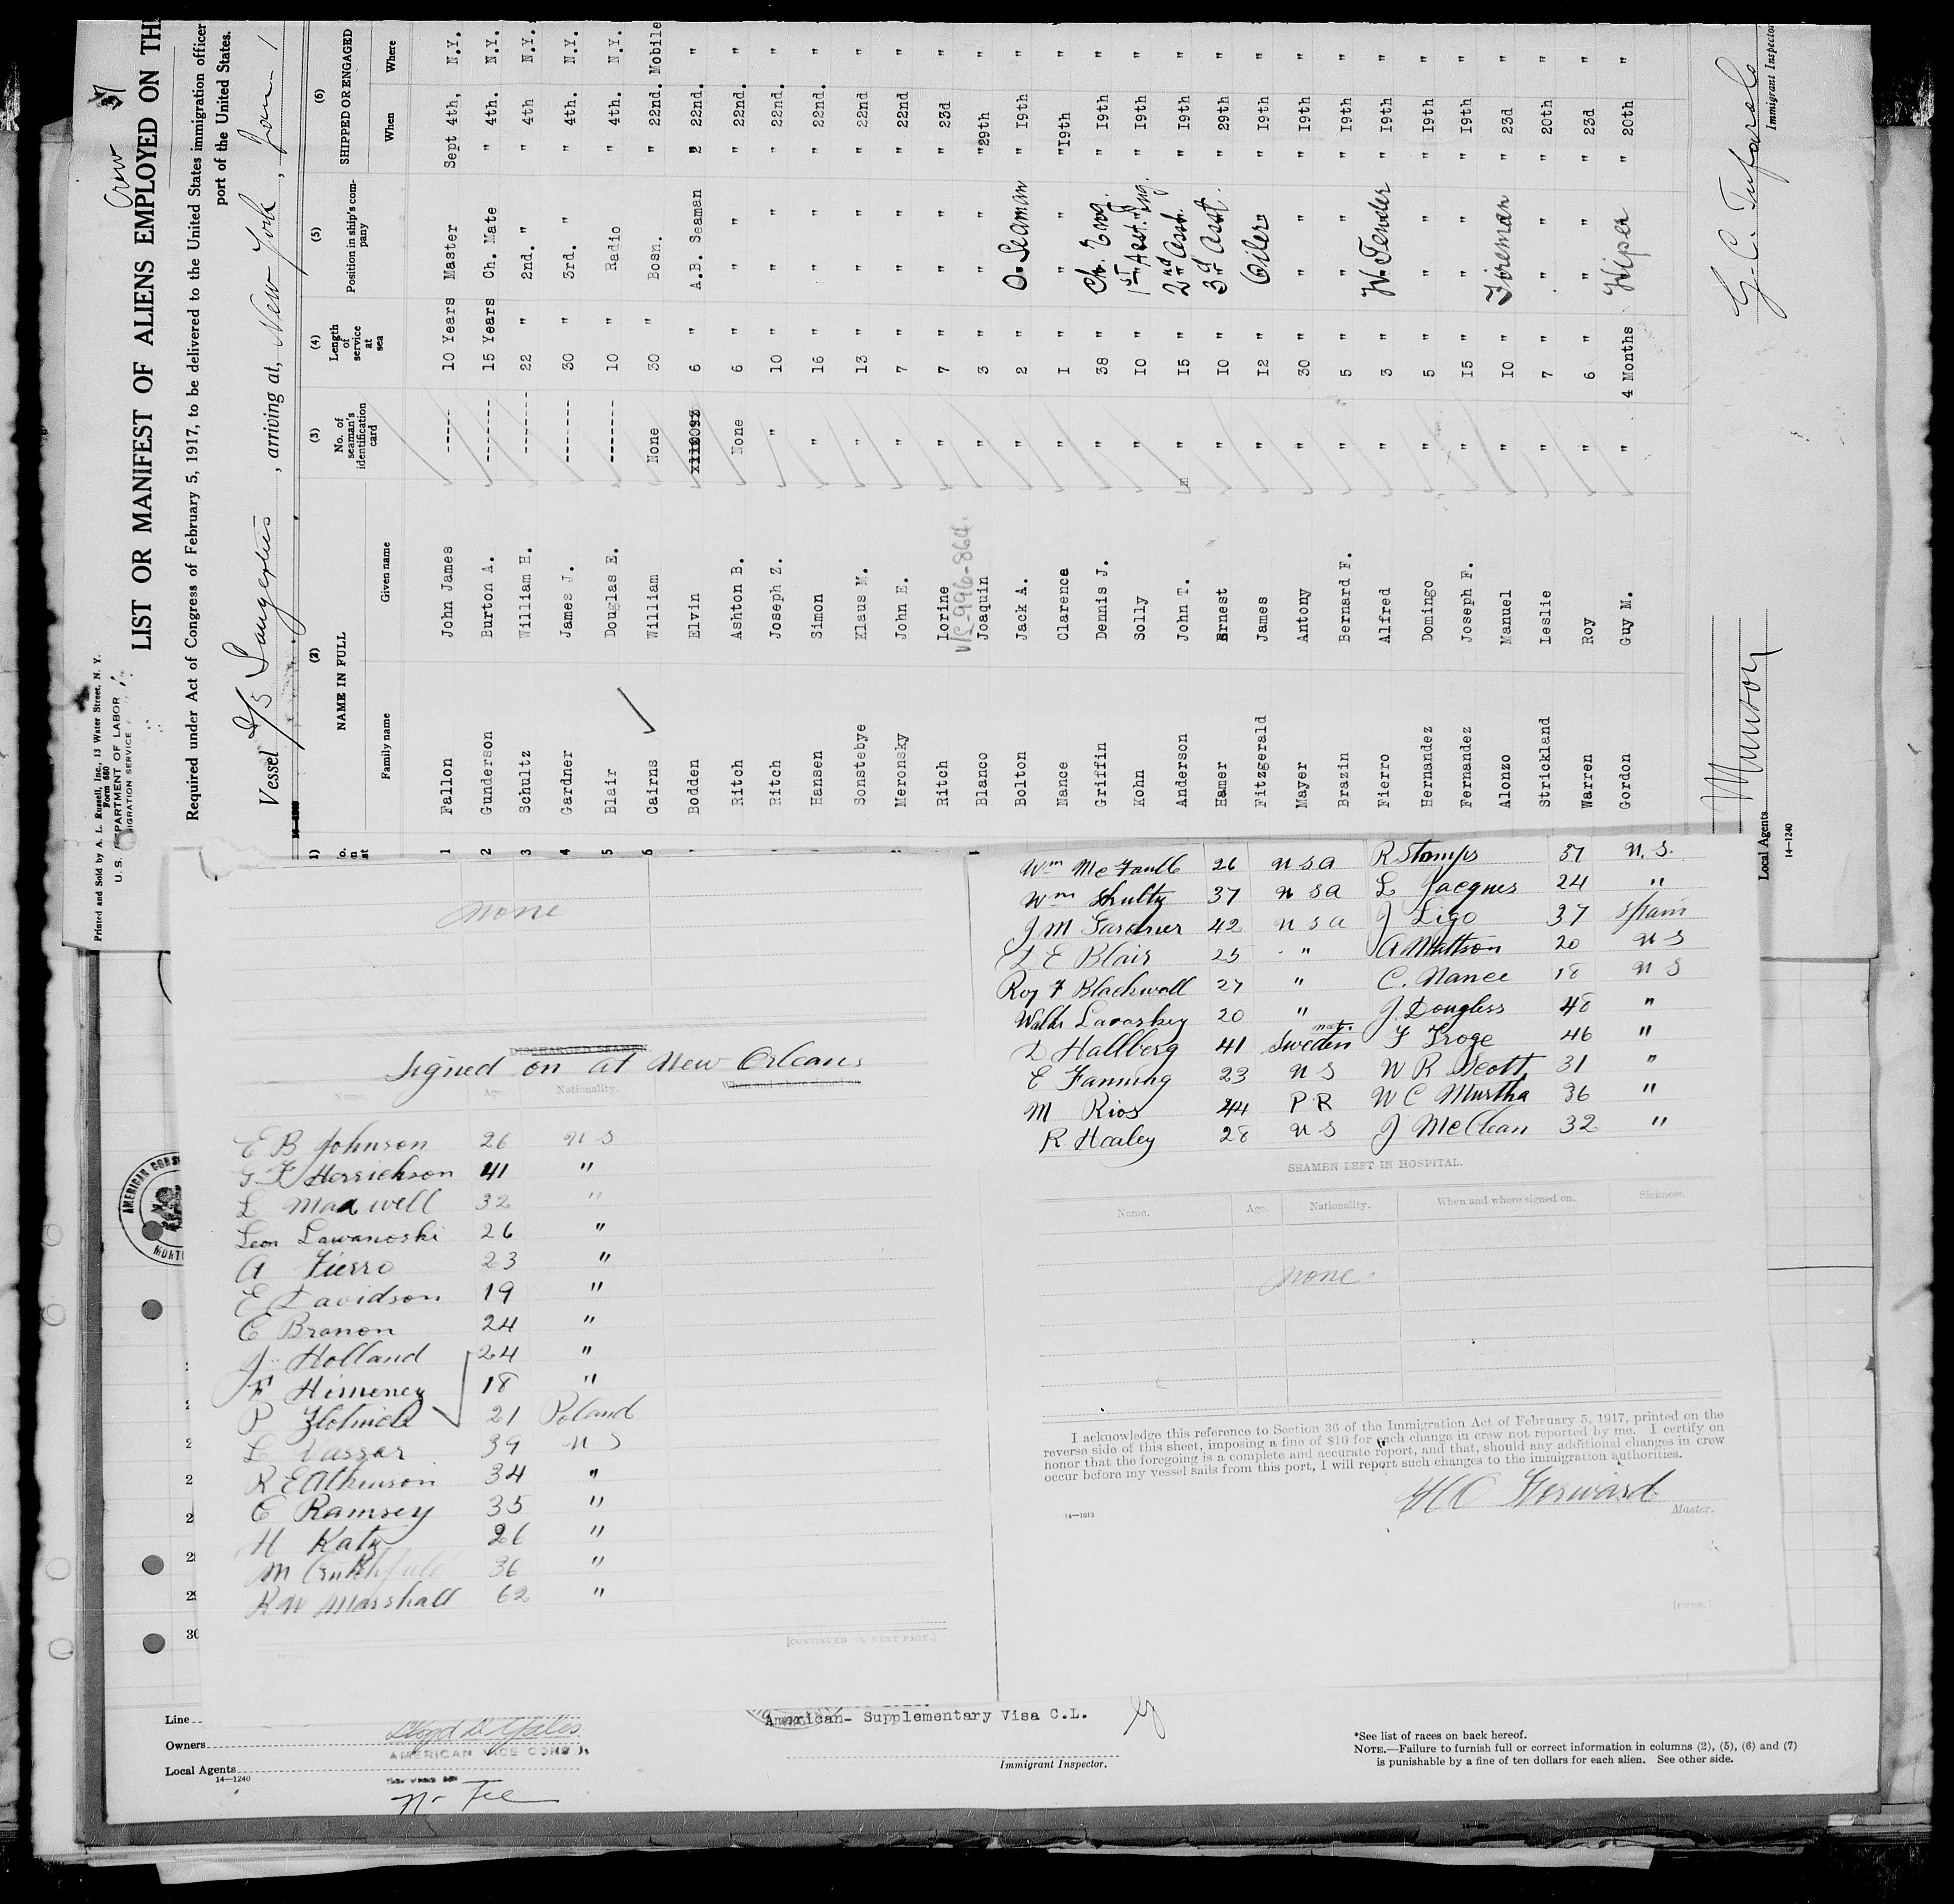 Crew
37
Printed and Sold by A. L. Russell, Inc., 13 Water Street, N. Y.
Form 680
U. S. DEPARTMENT OF LABOR
IMMIGRATION SERVICE
LIST OR MANIFEST OF ALIENS EMPLOYED ON TH
Required under Act of Congress of February 5, 1917, to be delivered to the United States immigration officer
port of the United States.
Vessel S/S Saugerties, arriving at, New York, Jan 1
(2) (3) (4) (5) (6)
NAME IN FULL No. of seaman's identification card Length of service at sea Position in ship's company SHIPPED OR ENGAGED
Family name Given name When Where
1 Fallon John James ----- 10 Years Master Sept 4th, N.Y.
2 Gunderson Burton A. -------- 15 Years Ch. Mate " 4th. N.Y.
3 Schultz William H. -------- 22 " 2nd. " " 4th N.Y.
4 Gardner James J. --- --- 30 " 3rd. " " 4th. N.Y.
5 Blair Douglas E. ------- 10 " Radio " 4th. N.Y.
6 Cairns William None 30 " Bosn. " 22nd. Mobile
Bodden Elvin 6 " A.B. Seaman " 22nd. "
Ritch Ashton B. None 6 " " " 22nd. "
Ritch Joseph Z. " 10 " " " 22nd. "
Hansen Simon " 16 " " " 22nd. "
Sonstebye Klaus M. " 13 " " " 22nd "
Meronsky John E. " 7 " " " 22nd "
Ritch Lorine " 7 " " " 23d "
V/S-996-864.
Blanco Joaquin " 3 " " "29th "
Bolton Jack A. " 2 " O. Seaman " 19th "
Nance Clarence " 1 " " "19th "
Griffin Dennis J. " 38 " Ch. Eng. " 19th "
Kohn Solly " 10 " 1st Asst. Eng. " 19th "
Anderson John T. " 15 " 2nd Asst. " 19th "
Hamer Ernest " 10 " 3rd Asst. " 29th "
Fitzgerald James " 12 " Oiler " 19th "
Mayer Antony " 30 " " " 19th "
Brazin Bernard F. " 5 " " " 19th "
Fierro Alfred " 3 " W. Tender " 19th "
Hernandez Domingo " 5 " " " 19th "
Fernandez Joseph F. " 15 " " " 19th "
Alonzo Manuel " 10 " Fireman " 23d "
Strickland Leslie " 7 " " " 20th "
Warren Roy " 6 " " " 23d "
Gordon Guy M. " 4 Months Wiper " 20th "
Munson
Local Agents
14—1240
Immigrant Inspector
none
DISCHARGED SEAMEN
Signed on at New Orleans
Name. Age. Nationality. When and where signed on
E B Johnson 26 U S
Herrickson 41 "
L Maxwell 32 "
Leon Lawanoski 26 "
A Fierro 23 "
E Davidson 19 "
C Branon 24 "
J. Holland 24 "
F Himeney 18 "
P 21 Poland
L Vassar 39 U S
R E Atkinson 34 "
C Ramsey 35 "
H Katz 26 "
M Crutchfield 36 "
R W Marshall 62 "
[CONTINUED ON NEXT PAGE.]
Wm McFaulb 26 U S A
Wm Shultz 37 U S A
J M Gardner 42 U S A
D E Blair 25 "
Roy F Blackwell 27 "
20 "
D Hallberg 41 Sweden nat.
E Fanning 23 U S
M Rios 44 P R
R Healey 28 U S
R Stamps 37 U. S.
L Jacques 24 "
J Ligo 37 Spain
A Mattson 20 U S
C. Nance 18 U S
J. Dougless 48 "
F Troge 46 "
W R Scott 31 "
W C Murtha 36 "
J McClean 32 "
SEAMEN LEFT IN HOSPITAL.
Name. Age. Nationality. When and where signed on. Sickness.
none
I acknowledge this reference to Section 36 of the Immigration Act of February 5, 1917, printed on the
reverse side of this sheet, imposing a fine of $10 for each change in crew not reported by me. I certify on
honor that the foregoing is a complete and accurate report, and that, should any additional changes in crew
occur before my vessel sails from this port, I will report such changes to the immigration authorities.
Master.
14—1613
[OVER.]
AMERICAN CONS
30
Line
Owners
Local Agents
14—1240
AMERICAN VICE CONSUL
No Fee
American- Supplementary Visa C.L.
Immigrant Inspector.
*See list of races on back hereof.
NOTE.—Failure to furnish full or correct information in columns (2), (5), (6) and (7)
is punishable by a fine of ten dollars for each alien. See other side.